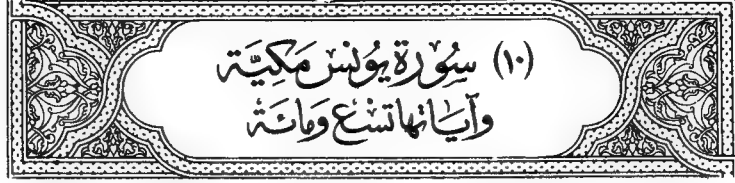 (١٠) سُوْرَة يُونسَ مَكيَّة
وَآيَاتها تسْع وَمائة